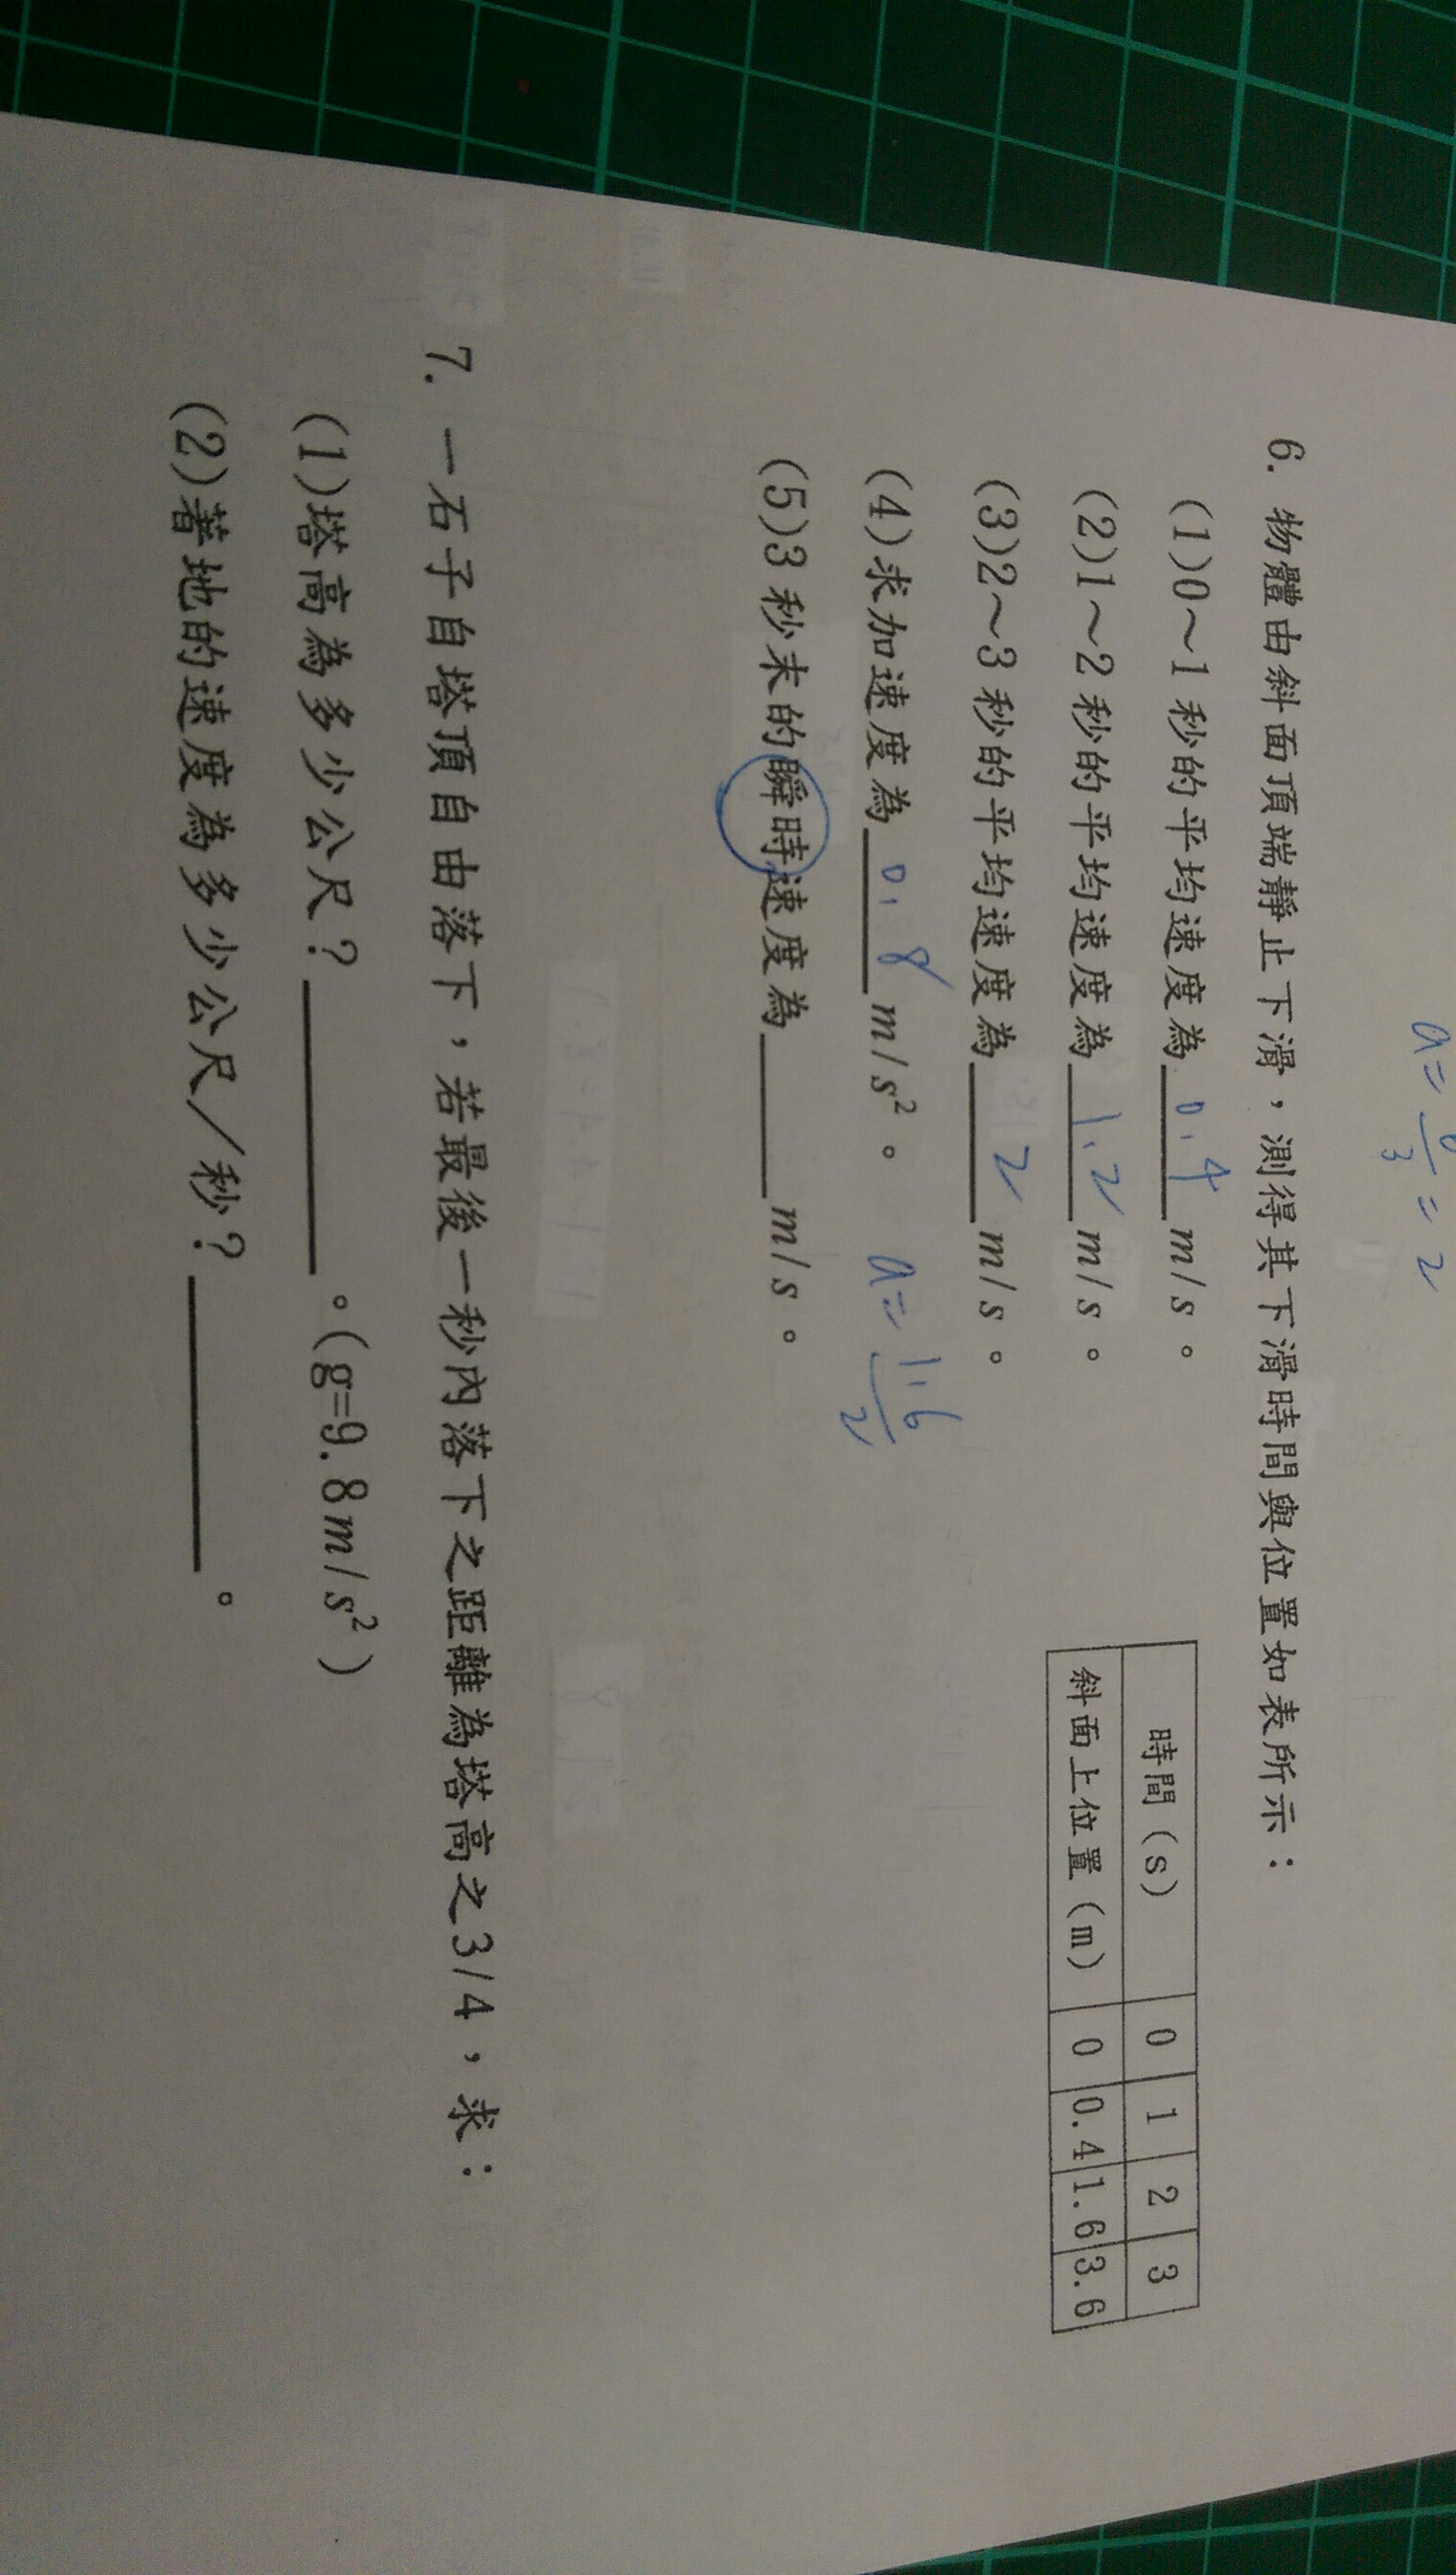 a=6/3=2
6. 物體由斜面頂端靜止下滑，測得其下滑時間與位置如表所示：
(1)0～1秒的平均速度為 0.4 m/s。
(2)1～2秒的平均速度為 1.2 m/s。
(3)2～3秒的平均速度為 2 m/s。
(4)求加速度為 0.8 m/s²。 a=1.6/2
(5)3秒末的瞬時速度為______m/s。
時間(s) 0 1 2 3
斜面上位置(m) 0 0.4 1.6 3.6
7. 一石子自塔頂自由落下，若最後一秒內落下之距離為塔高之3/4，求：
(1)塔高為多少公尺？__________。(g=9.8m/s²)
(2)著地的速度為多少公尺／秒？__________。